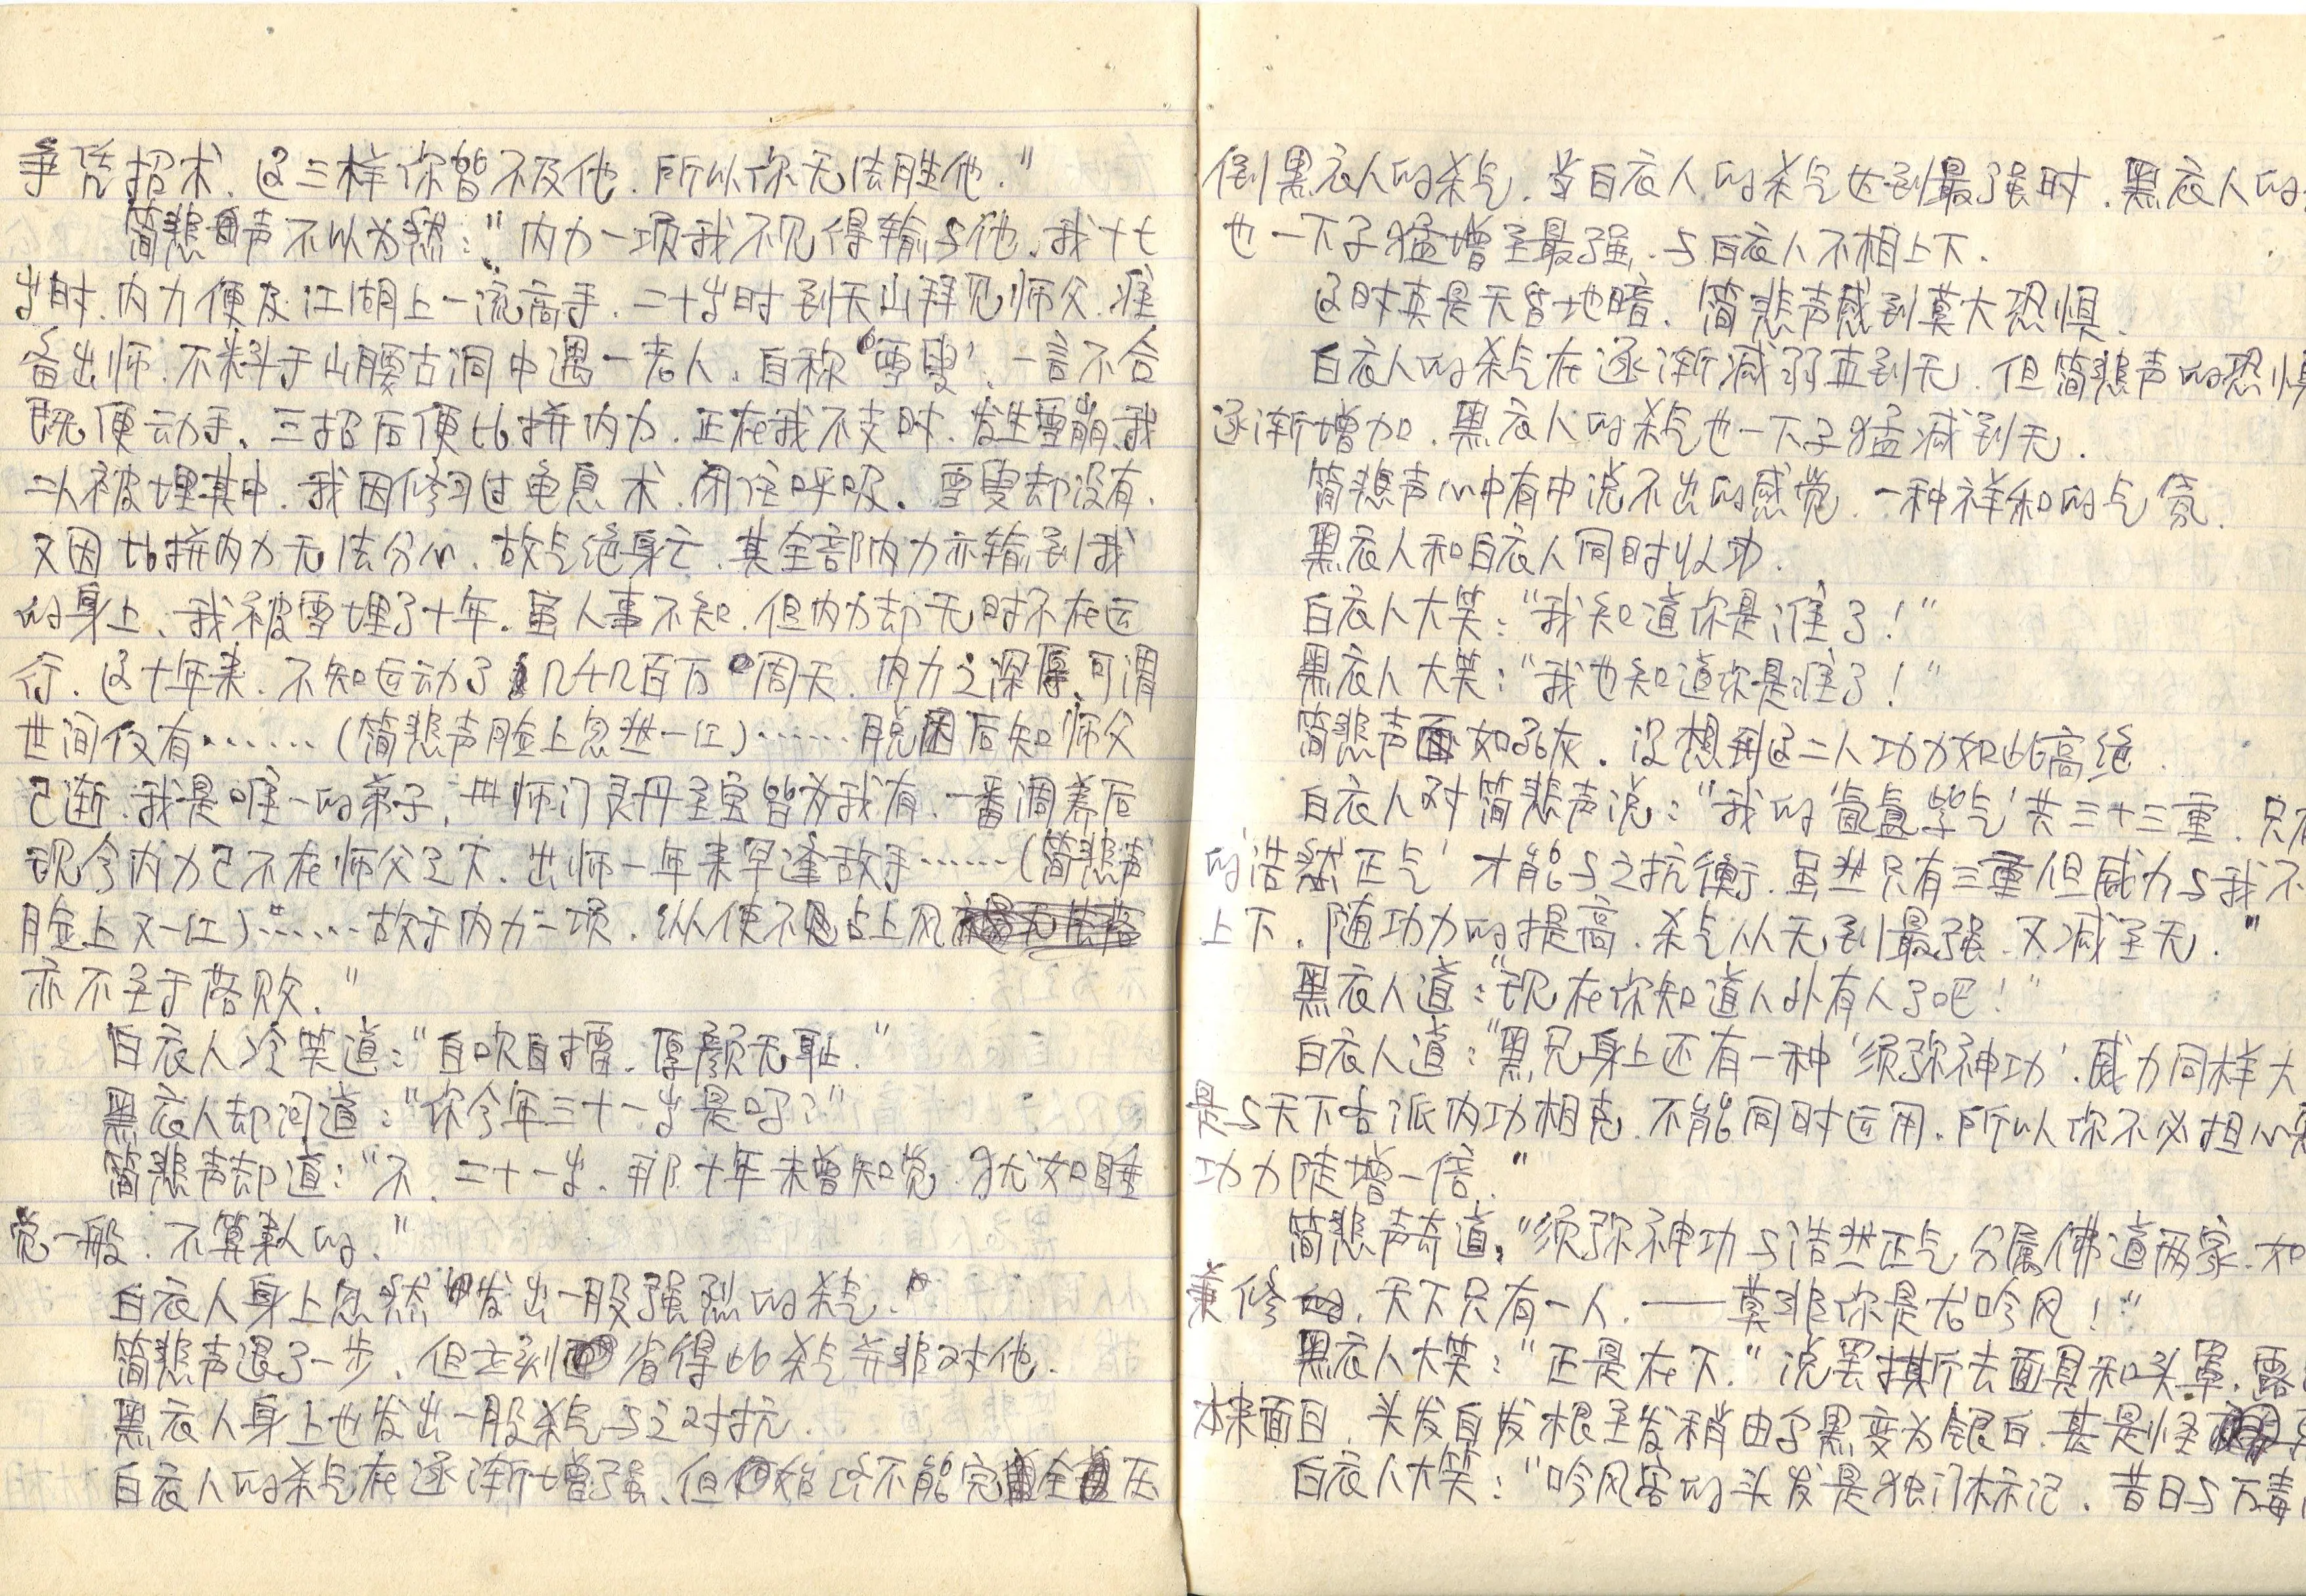 争凭招术、这三样你皆不及他.所以你无法胜他."
简悲声不以为然:"内力一项我不见得输与他.我十七
岁时.内力便及江湖上一流高手.二十岁时到天山拜见师父.准
备出师.不料于山腰古洞中遇一老人.自称'雪叟'、一言不合
既便动手、三招后便比拼内力.正在我不支时、发生雪崩.我
二人被埋其中.我因修习过龟息术.闭住呼吸.雪叟却没有.
又因比拼内力无法分心、故气绝身亡、其全部内力亦输到我
的身上、我被雪埋了十年.虽人事不知.但内力却无时不在运
行.这十年来.不知运动了几千几百万周天.内力之深厚.可谓
世间仅有……(简悲声脸上忽然一红)……脱困后知师父
已逝.我是唯一的弟子,世师门灵丹至宝皆为我有.一番调养后
现今内力已不在师父之下.出师一年来早逢敌手……(简悲声
脸上又一红)……故于内力一项.纵使不占上风
亦不至于落败."
白衣人冷笑道:"自吹自擂.厚颜无耻."
黑衣人却问道:"你今年三十一岁是吗?"
简悲声却道:"不、二十一岁.那十年未曾知觉.犹如睡
觉一般.不算数的."
白衣人身上忽然发出一股强烈的杀气."
简悲声退了一步、但立刻省得此杀气并非对他.
黑衣人身上也发出一股杀气与之对抗.
白衣人的杀气在逐渐增强、但始终不能完全压
倒黑衣人的杀气.当白衣人的杀气达到最强时.黑衣人的
也一下子猛增至最强.与白衣人不相上下.
这时真是天昏地暗.简悲声感到莫大恐惧.
白衣人的杀气在逐渐减弱直到无.但简悲声的恐惧
逐渐增加.黑衣人的杀气也一下子猛减到无.
简悲声心中有中说不出的感觉.一种祥和的气氛.
黑衣人和白衣人同时收功.
白衣人大笑:"我知道你是谁了!"
黑衣人大笑:"我也知道你是谁了!"
简悲声面如死灰.没想到这二人功力如此高绝.
白衣人对简悲声说:"我的'氤氲紫气'共三十三重.只有
的'浩然正气'才能与之抗衡.虽然只有三重但威力与我不
上下.随功力的提高.杀气从无到最强.又减至无."
黑衣人道:"现在你知道人外有人了吧!"
白衣人道:"黑兄身上还有一种'须弥神功'.威力同样大
是与天下各派内功相克.不能同时运用.所以你不必担心
功力陡增一倍."
简悲声奇道:"须弥神功与浩然正气分属佛道两家.如
兼修.天下只有一人.——莫非你是古吟风!"
黑衣人大笑:"正是在下."说罢撕去面具和头罩.露
本来面目.头发自发根至发稍由黑变为银白.甚是怪
白衣人大笑:"吟风客的头发是独门标记.昔日与万毒